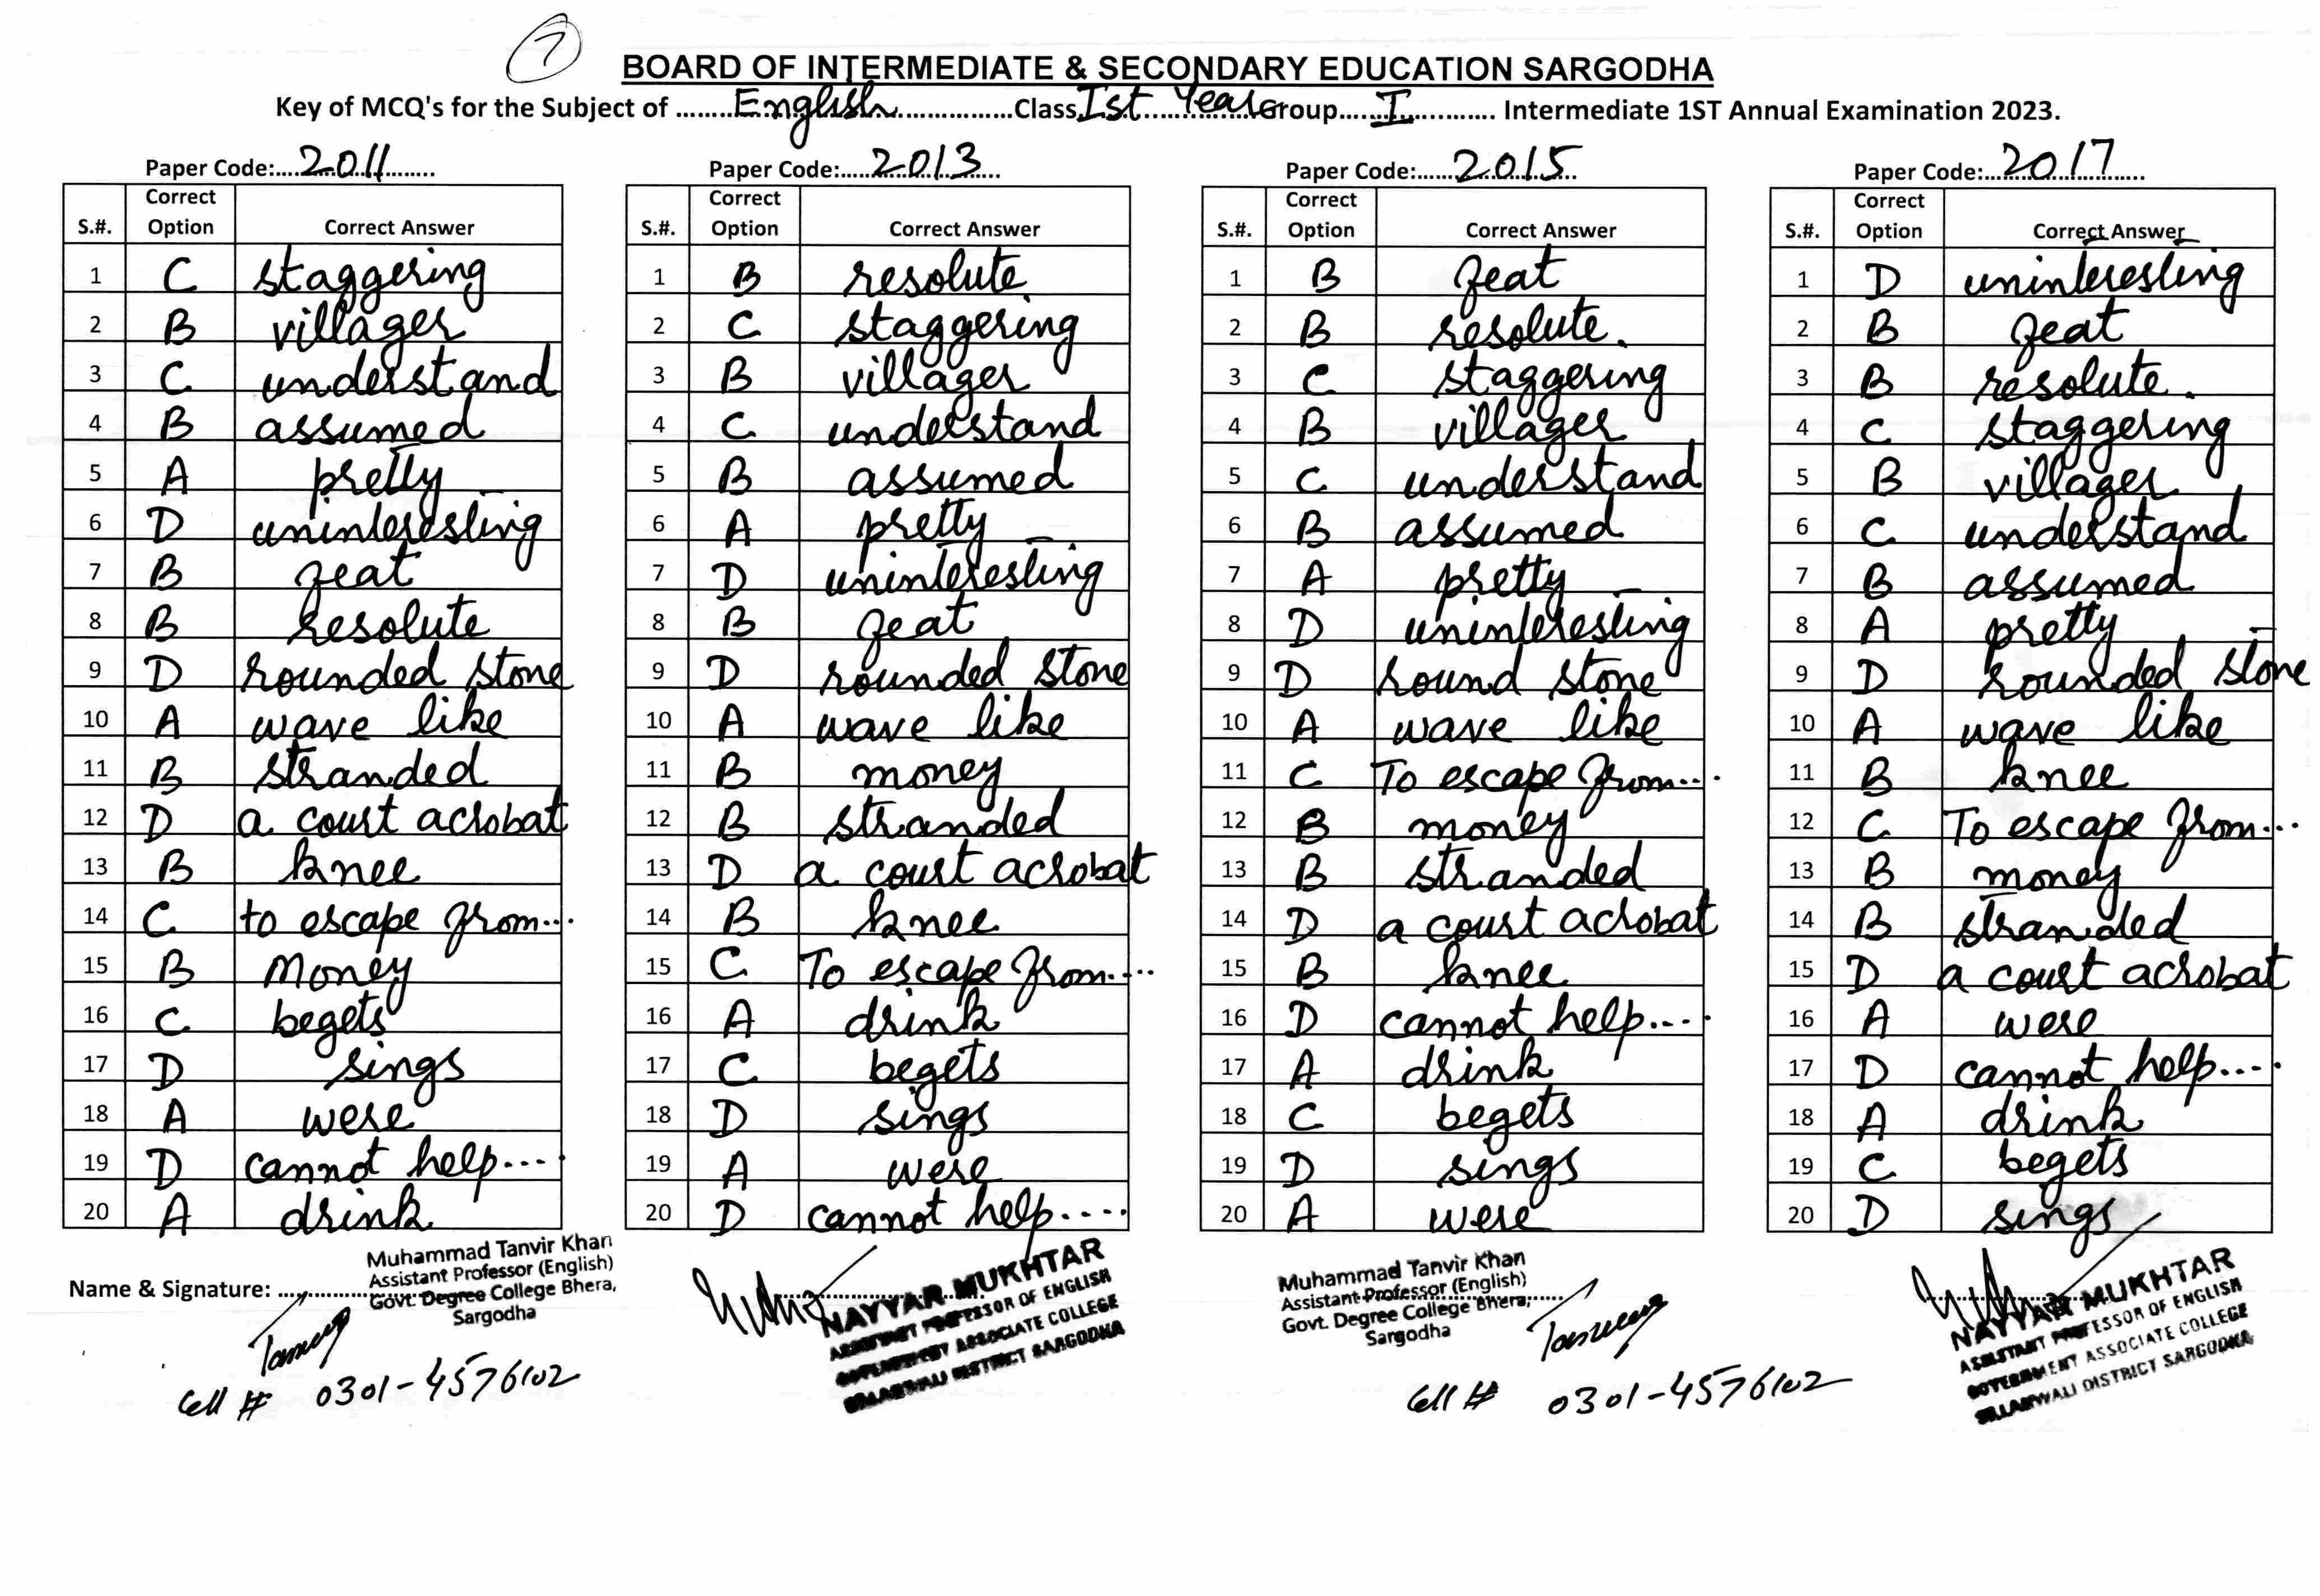 7
BOARD OF INTERMEDIATE & SECONDARY EDUCATION SARGODHA
Key of MCQ's for the Subject of ........English..............Class Ist Year Group......I.......... Intermediate 1ST Annual Examination 2023.
Paper Code:....2011..........
S.#. Correct Option Correct Answer
1 C staggering
2 B villager
3 C understand
4 B assumed
5 A pretty
6 D uninteresting
7 B feat
8 B resolute
9 D rounded stone
10 A wave like
11 B stranded
12 D a court acrobat
13 B knee
14 C to escape from...
15 B Money
16 C begets
17 D sings
18 A were
19 D cannot help....
20 A drink
Paper Code:....2013..........
S.#. Correct Option Correct Answer
1 B resolute
2 C staggering
3 B villager
4 C understand
5 B assumed
6 A pretty
7 D uninteresting
8 B feat
9 D rounded stone
10 A wave like
11 B money
12 B stranded
13 D a court acrobat
14 B knee
15 C To escape from.....
16 A drink
17 C begets
18 D sings
19 A were
20 D cannot help....
Paper Code:....2015..........
S.#. Correct Option Correct Answer
1 B feat
2 B resolute.
3 C staggering
4 B villager
5 C understand
6 B assumed
7 A pretty
8 D uninteresting
9 D round stone
10 A wave like
11 C To escape from...
12 B money
13 B stranded
14 D a court acrobat
15 B knee
16 D cannot help....
17 A drink
18 C begets
19 D sings
20 A were
Paper Code:....2017..........
S.#. Correct Option Correct Answer
1 D uninteresting
2 B feat
3 B resolute.
4 C staggering
5 B villager
6 C understand
7 B assumed
8 A pretty
9 D rounded stone
10 A wave like
11 B knee
12 C To escape from...
13 B money
14 B stranded
15 D a court acrobat
16 A were
17 D cannot help....
18 A drink
19 C begets
20 D sings
Name & Signature: ..................
Muhammad Tanvir Khan
Assistant Professor (English)
Govt. Degree College Bhera,
Sargodha
Cell # 0301-4576102
NAYYAR MUKHTAR
ASSISTANT PROFESSOR OF ENGLISH
GOVERNMENT ASSOCIATE COLLEGE
SILLANWALI DISTRICT SARGODHA
Muhammad Tanvir Khan
Assistant Professor (English)
Govt. Degree College Bhera,
Sargodha
Cell # 0301-4576102
NAYYAR MUKHTAR
ASSISTANT PROFESSOR OF ENGLISH
GOVERNMENT ASSOCIATE COLLEGE
SILLANWALI DISTRICT SARGODHA